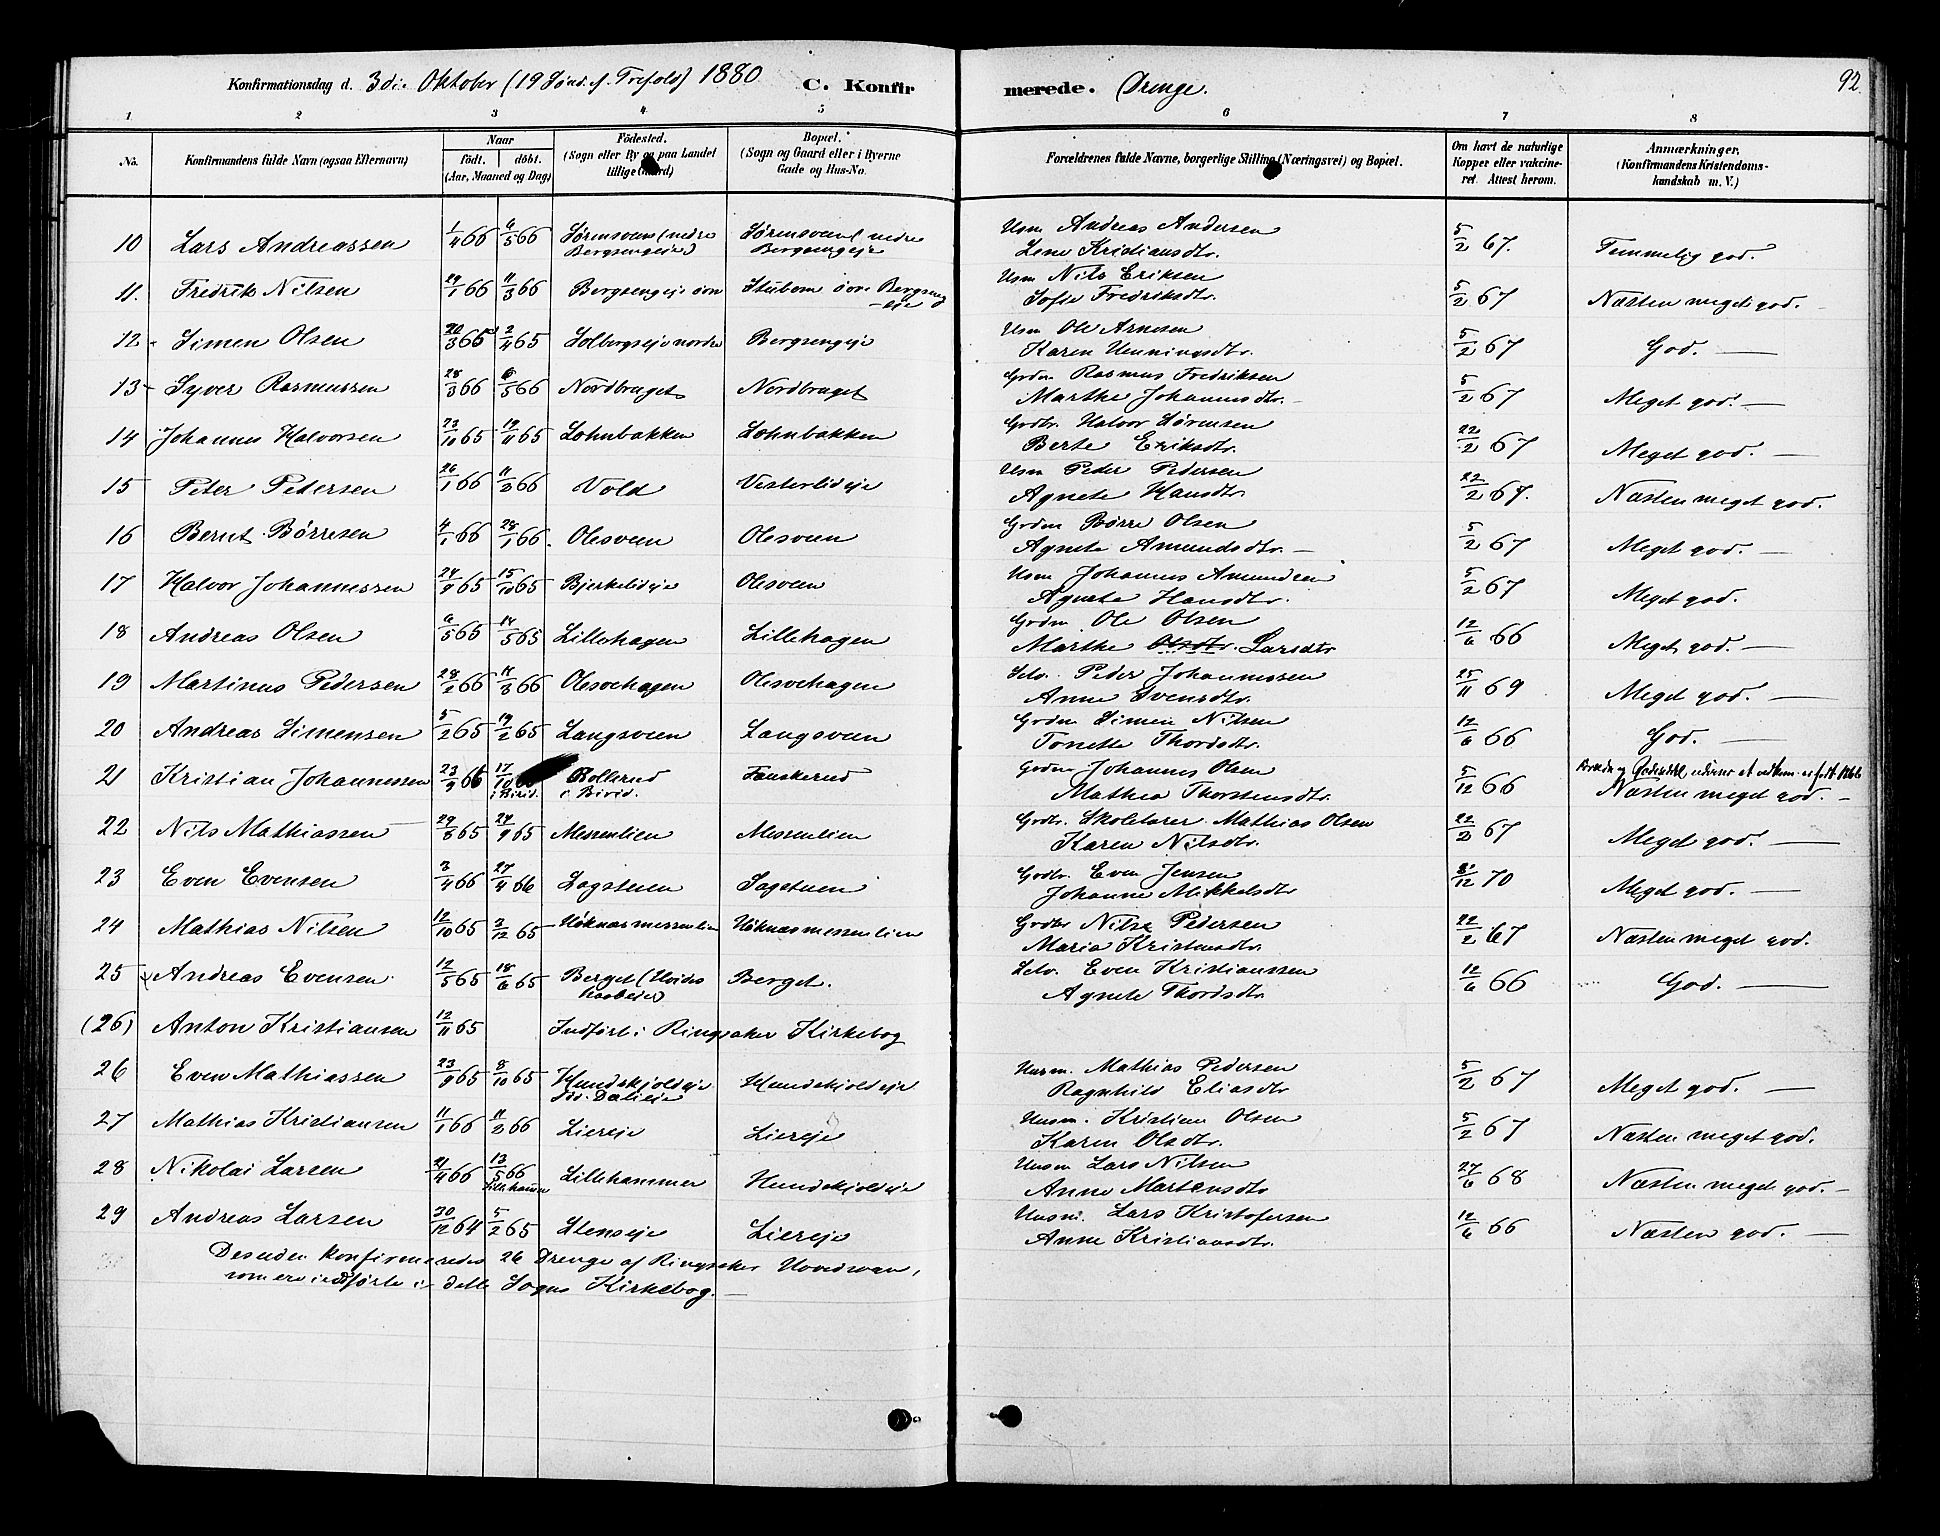 Konfirmationsdag d. 3die Oktober (19 Sönd. f. Trefold) 1880 C. Konfir
merede. Drenge. 92.
1 2 3 4 5 6 7 8
No. Konfirmandens fulde Navn (ogsaa Efternavn) Naar födt. döbt. (Aar, Maaned og Dag) Födested. (Sogn eller By og paa Landet tillige Gaard) Bopæl. (Sogn og Gaard eller i Byerne Gade og Hus-No. Forældrenes fulde Navne, borgerlige Stilling (Næringsvei) og Bopæl. Om havt de naturlige Kopper eller vakcineret. Attest herom. Anmærkninger. (Konfirmandens Kristendomskundskab m. V.)
10 Lars Andreassen 1/4 66 6/5 66 Sørensveen (nedre Bergsengeie) Sørensveen (nedre Bergsengeje Usm Andreas Andersen Lene Kristiansdtr. 5/2 67. Temmelig god.
11. Fredrik Nilsen 29/1 66 11/3 66 Bergsengeje övre Stubom övre Bergsengeje Usm Nils Eriksen Sofie Fredriksdtr. 5/2 67 Næsten meget god.
12 Simen Olsen 20/3 65 2/4 65 Solbergseje nordre Bergsengeje Usm Ole Arnesen Karen Henningsdtr. 5/2 67 God. —
13 Syver Rasmussen 28/3 66 6/5 66 Nordbraget Nordbraget Grdm. Rasmus Fredriksen Marthe Johannesdtr. 5/2 67 Meget god. —
14 Johannes Halvorsen 23/10 65 19/11 65 Lohnbakken Lohnbakken Grdbr. Halvor Sörensen Berte Eriksdtr. 22/2 67 Meget god. —
15 Peter Pedersen 26/1 66 11/3 66 Vold Vesterlideje Usm Peder Pedersen Agnete Hansdtr. 22/2 67. Næsten meget god.
16 Bernt Börresen 4/1 66 28/1 66. Olesveen Olesveen Grdm Börre Olsen Agnete Amundsdtr. — 5/2 67 Meget god. —
17 Halvor Johannessen 24/9 65 15/10 65 Bjerkelideje Olesveen Usm Johannes Amundsen Agnete Hansdtr. 5/2 67 Meget god.
18 Andreas Olsen 6/5 65 14/5 65 Lillehagen Lillehagen Grdm Ole Olsen Marthe Olsdtr. Larsdtr 12/6 66 Meget god. —
19 Martinus Pedersen 28/2 66 11/3 66 Olesvehagen Olesvehagen Selv. Peder Johannessen Anne Svensdtr. 25/11 69 Meget god. —
20 Andreas Simensen 5/2 65 19/2 65 Langsveen Langsveen Grdm Simen Nilsen Tonette Thordsdtr. 12/6 66 God. —
21 Kristian Johannessen 23/9 66 17/10 i Birid. Rollerud i Birid. Fauskerud Grdm Johannes Olsen Mathea Thorstensdtr. 5/12 66 Næsten meget god. —
22 Nils Mathiassen 29/8 65 24/9 65 Messenlien Messenlien Grdbr. Skolelærer Mathias Olsen Karen Nilsdtr. 22/2 67 Meget god. —
23 Even Evensen 3/4 66 27/4 66 Sagstuen Sagstuen Grdbr. Even Jensen Johanne Mikkelsdtr 8/12 70 Meget god. —
24 Mathias Nilsen 12/10 65 3/12 65 Höknasmessenlien Höknasmessenlien Grdbr Nils Pedersen Maria Kristensdtr. 22/2 67 Næsten meget god.
25 Andreas Evensen 12/5 65 18/6 65 Berget Berget. Selv. Even Kristianssen Agnete Thordsdtr 12/6 66 God. —
(26) Anton Kristiansen 12/11 65 Indfört i Ringsaker Kirkebog
26 Even Mathiassen 23/9 65 8/10 65 Hundskjoldeje Hundskjoldeje Husm. Mathias Pedersen Ragnhild Eliasdtr 5/2 67 Meget god. —
27 Mathias Kristiansen 11/1 66 11/2 66 Liereje Liereje Husm. Kristian Olsen Karen Olsdtr. 5/2 67 Næsten meget god.
28 Nikolai Larsen 21/4 66 13/5 66 Lillehammer Hundskjoldeje Husm Lars Nilsen Anne Martensdtr 27/6 68 Næsten meget god. —
29 Andreas Larsen 30/12 64 5/2 65 Stenseje Liereje Husm. Lars Kristofersen Anne Kristiansdtr. 12/6 66 Næsten god. —
Desuden konfirmeredes 26 Drenge af Ringsaker Hovedsogn,
som ere indførte i dette Sogns Kirkebog. —